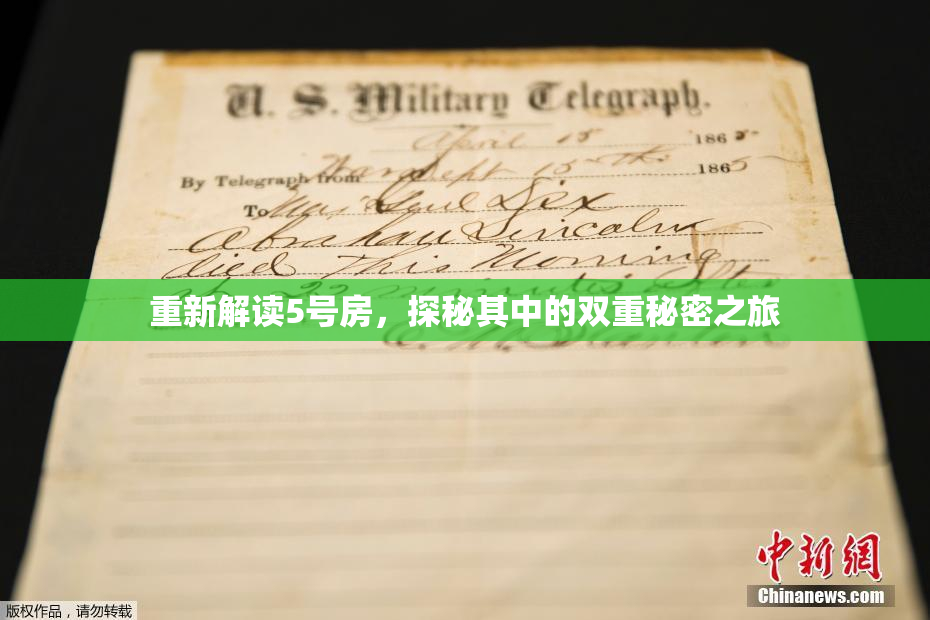 U. S. Military Telegraph.
April 15 1865
By Telegraph from War Dept 15th 1865
To Maj Genl Dix
Abraham Lincoln
died This Morning
at 22 minutes after
重新解读5号房，探秘其中的双重秘密之旅
E. M. Stanton
中新网
Chinanews.com
版权作品，请勿转载